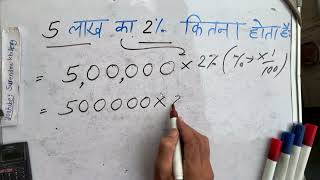 5 लाख का 2% कितना होता है
= 5,00,000 × 2% (% → × 1/100)
= 500000 × 2